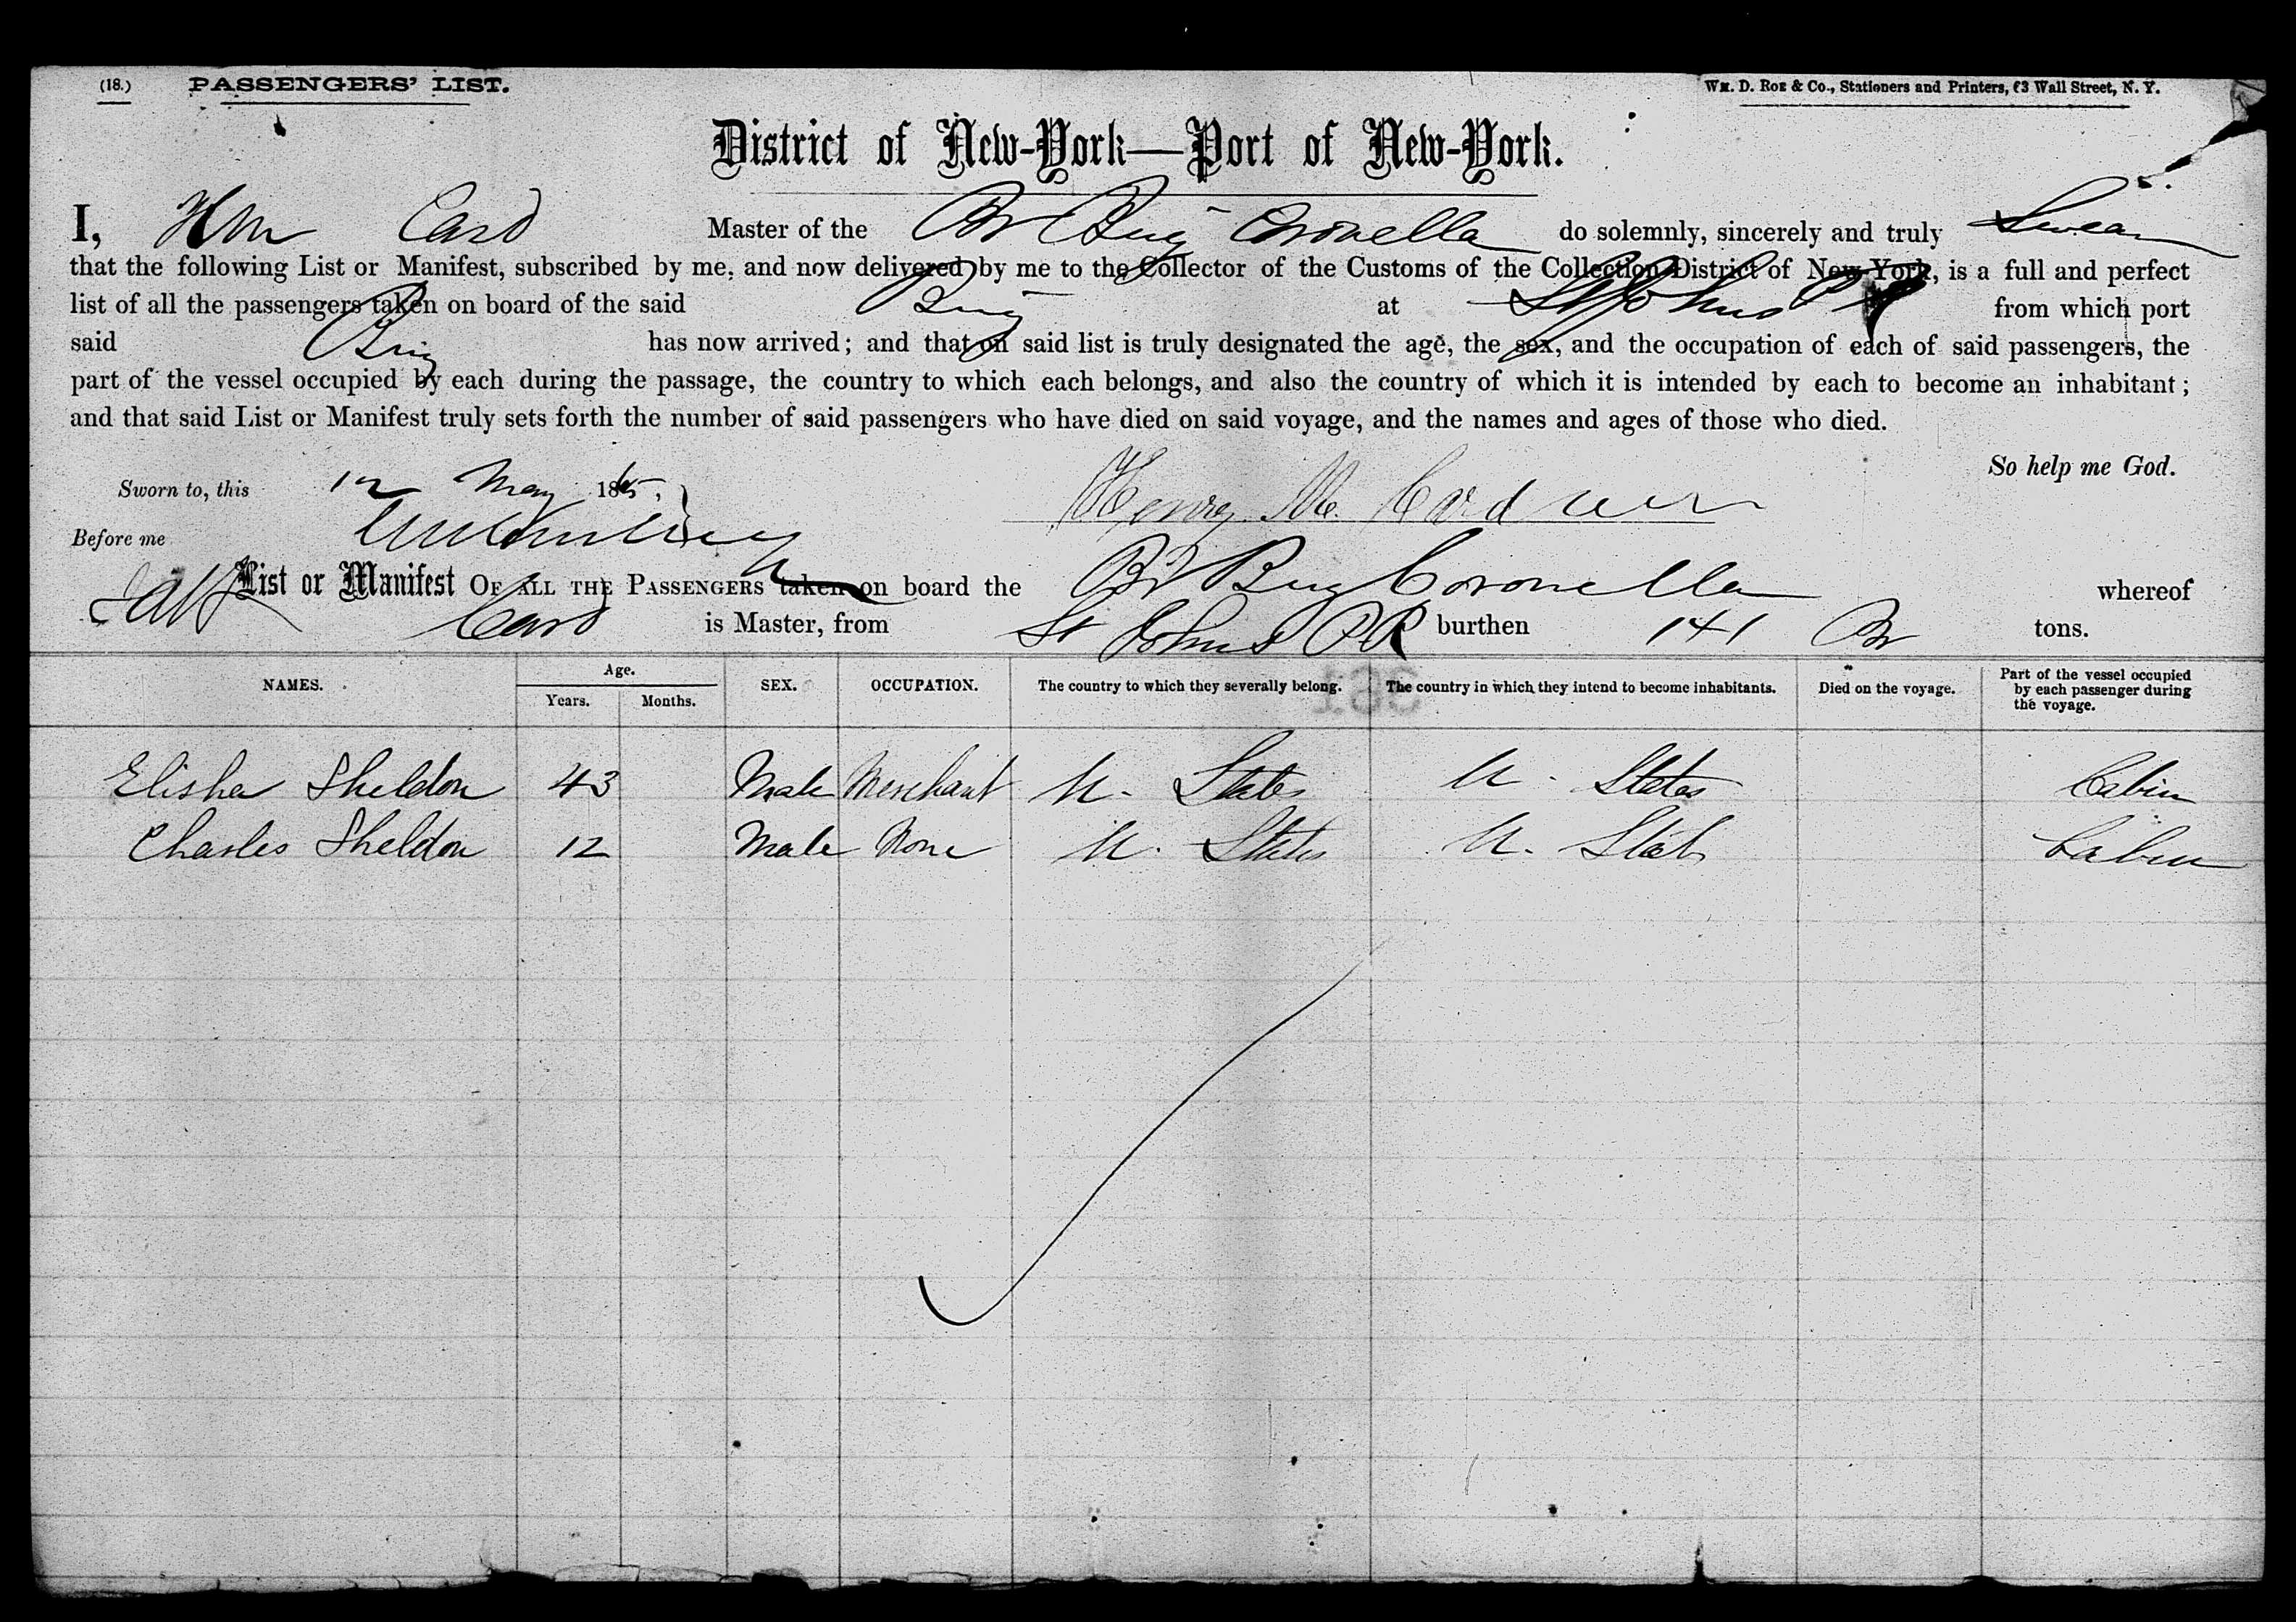 (18.) PASSENGERS' LIST. WM. D. ROE & CO., Stationers and Printers, 63 Wall Street, N. Y.
District of New-York—Port of New-York.
I, H M Card Master of the Br Brig Coronella do solemnly, sincerely and truly Swear
that the following List or Manifest, subscribed by me, and now delivered by me to the Collector of the Customs of the Collection District of New-York, is a full and perfect
list of all the passengers taken on board of the said Brig at St Johns P R from which port
said Brig has now arrived; and that on said list is truly designated the age, the sex, and the occupation of each of said passengers, the
part of the vessel occupied by each during the passage, the country to which each belongs, and also the country of which it is intended by each to become an inhabitant;
and that said List or Manifest truly sets forth the number of said passengers who have died on said voyage, and the names and ages of those who died.
So help me God.
Sworn to, this 12 May 1865, Henry M. Card
Before me
List or Manifest OF ALL THE PASSENGERS taken on board the Br Brig Coronella whereof
Card is Master, from St Johns P R burthen 141 Br tons.
NAMES. Age. Years. Months. SEX. OCCUPATION. The country to which they severally belong. The country in which they intend to become inhabitants. Died on the voyage. Part of the vessel occupied by each passenger during the voyage.
361
Elisha Sheldon 43 Male Merchant U. States U. States Cabin
Charles Sheldon 12 Male None U. States U. States Cabin